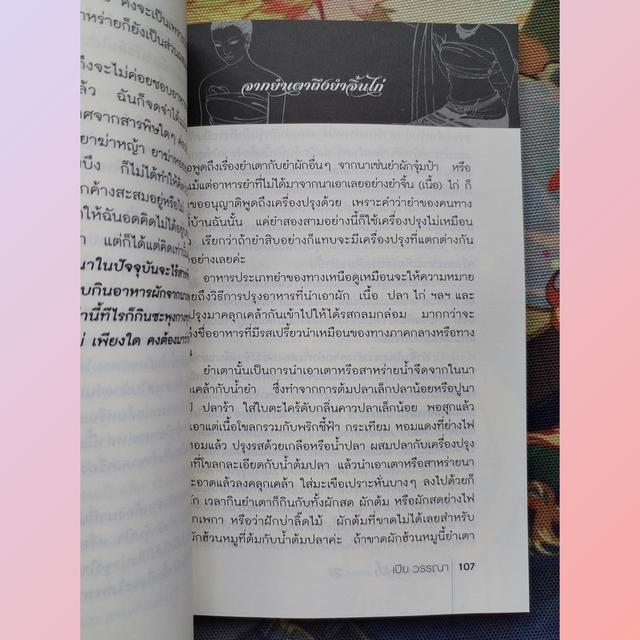 คงจะเป็นเพราะ
หร่ายก็ยังเป็นส่วน
ถึงจะไม่ค่อยชอบ
ล้ว ฉันก็จดจำได้
จากสารพิษใดๆ
ยาฆ่าหญ้า
บึง ก็ไม่ได้ทำให้
กค้างสะสมอยู่หรือไม่
ให้ฉันอดคิดไม่ได้
แต่ก็ได้แต่คิดเท่านั้น
นาในปัจจุบันจะไร้
กินอาหารผักจาก
นี้ทีไรก็กินซะพุงกาง
เพียงใด คงต้อง
จากยำเตาถึงยำจิ้นไก่
อพูดถึงเรื่องยำเตากับยำผักอื่นๆ จากนาเช่นยำผักจุ๋มป๋า หรือ
แม้แต่อาหารยำที่ไม่ได้มาจากนาเอาเลยอย่างยำจิ้น (เนื้อ) ไก่ ก็
ขออนุญาติพูดถึงเครื่องปรุงด้วย เพราะคำว่ายำของคนทาง
ที่บ้านฉันนั้น แค่ยำสองสามอย่างนี้ก็ใช้เครื่องปรุงไม่เหมือน
เรียกว่าถ้ายำสิบอย่างก็แทบจะมีเครื่องปรุงที่แตกต่างกัน
อย่างเลยค่ะ
อาหารประเภทยำของทางเหนือดูเหมือนจะให้ความหมาย
ยถึงวิธีการปรุงอาหารที่นำเอาผัก เนื้อ ปลา ไก่ ฯลฯ และ
งปรุงมาคลุกเคล้ากันเข้าไปให้ได้รสกลมกล่อม มากกว่าจะ
ชื่ออาหารที่มีรสเปรี้ยวนำเหมือนของทางภาคกลางหรือทาง
ยำเตานั้นเป็นการนำเอาเตาหรือสาหร่ายน้ำจืดจากในนา
เคล้ากับน้ำยำ ซึ่งทำจากการต้มปลาเล็กปลาน้อยหรือปูนา
ปลาร้า ใส่ใบตะไคร้ดับกลิ่นคาวปลาเล็กน้อย พอสุกแล้ว
เอาแต่เนื้อโขลกรวมกับพริกชี้ฟ้า กระเทียม หอมแดงที่ย่างไฟ
หอมแล้ว ปรุงรสด้วยเกลือหรือน้ำปลา ผสมปลากับเครื่องปรุง
ที่โขลกละเอียดกับน้ำต้มปลา แล้วนำเอาเตาหรือสาหร่ายนา
ะอาดแล้วลงคลุกเคล้า ใส่มะเขือเปราะหั่นบางๆ ลงไปด้วยก็
เวลากินยำเตาก็กินกับทั้งผักสด ผักต้ม หรือผักสดย่างไฟ
กเพกา หรือว่าฝักปาลิ๊ดไม้ ผักต้มที่ขาดไม่ได้เลยสำหรับ
ผักฮ้วนหมูที่ต้มกับน้ำต้มปลาค่ะ ถ้าขาดผักฮ้วนหมูนี้ยำเตา
เปีย วรรณา 107